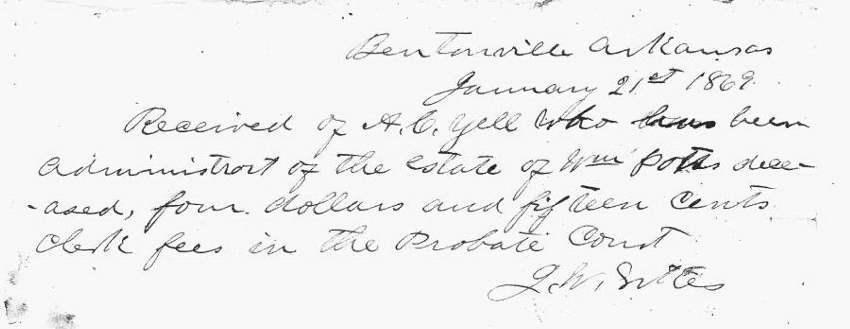 Bentonville Arkansas
January 21st 1869.
Received of A. C. Yell who has been
administrort of the estate of Wm Potts dece-
-ased, four dollars and fifteen cents
clerk fees in the Probate Court
J. W. Sittes